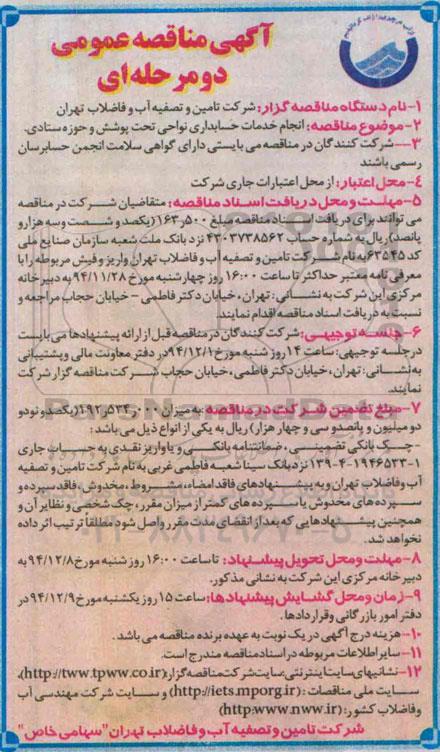 آگهی مناقصه عمومی
دو مرحله‌ای
۱-نام دستگاه مناقصه گزار: شرکت تامین و تصفیه آب و فاضلاب تهران
۲-موضوع مناقصه: انجام خدمات حسابداری نواحی تحت پوشش و حوزه ستادی.
۳-شرکت کنندگان در مناقصه می بایستی دارای گواهی سلامت انجمن حسابرسان
رسمی باشند
۴-محل اعتبار: از محل اعتبارات جاری شرکت
۵-مهلت و محل دریافت اسناد مناقصه: متقاضیان شرکت در مناقصه
می توانند برای دریافت اسناد مناقصه مبلغ ۱۶۳٫۵۰۰ (یکصد و شصت و سه هزار و
پانصد) ریال به شماره حساب ۴۳۰۳۷۳۸۵۶۲ نزد بانک ملت شعبه سازمان صنایع ملی
کد ۶۳۵۴۵ به نام شرکت تامین و تصفیه آب و فاضلاب تهران واریز و فیش مربوطه را با
معرفی نامه معتبر حداکثر تا ساعت ۱۶:۰۰ روز چهارشنبه مورخ ۹۴/۱۱/۲۸ به دبیرخانه
مرکزی این شرکت به نشانی: تهران، خیابان دکتر فاطمی - خیابان حجاب مراجعه و
نسبت به دریافت اسناد مناقصه اقدام نمایند.
۶-جلسه توجیهی: شرکت کنندگان در مناقصه قبل از ارائه پیشنهادها می بایست
در جلسه توجیهی: ساعت ۱۴ روز شنبه مورخ ۹۴/۱۲/۱ در دفتر معاونت مالی و پشتیبانی
به نشانی: تهران، خیابان دکتر فاطمی، خیابان حجاب شرکت مناقصه گزار شرکت
نمایند.
۷-مبلغ تضمین شرکت در مناقصه به میزان ۱۹۲٫۵۳۴٫۰۰۰ (یکصد و نود و
دو میلیون و پانصد و سی و چهار هزار) ریال به یکی از انواع ذیل می باشد:
-چک بانکی تضمینی، ضمانتنامه بانکی و یا واریز نقدی به حساب جاری
۱۳۹-۴-۱۹۴۶۵۳۳-۱ نزد بانک سینا شعبه فاطمی غربی به نام شرکت تامین و تصفیه
آب و فاضلاب تهران و به پیشنهادهای فاقد امضاء، مشروط، مخدوش، فاقد سپرده و
سپرده های مخدوش یا سپرده های کمتر از میزان مقرر، چک شخصی و نظایر آن و
همچنین پیشنهادهایی که بعد از انقضای مدت مقرر واصل شود مطلقاً ترتیب اثر داده
نخواهد شد.
۸-مهلت و محل تحویل پیشنهاد: تا ساعت ۱۶:۰۰ روز شنبه مورخ ۹۴/۱۲/۸ به
دبیرخانه مرکزی این شرکت به نشانی مذکور.
۹-زمان و محل گشایش پیشنهادها: ساعت ۱۵ روز یکشنبه مورخ ۹۴/۱۲/۹ در
دفتر امور بازرگانی و قراردادها.
۱۰-هزینه درج آگهی در یک نوبت به عهده برنده مناقصه می باشد.
۱۱-سایر اطلاعات مربوطه در اسناد مناقصه مندرج است.
۱۲-نشانیهای سایت اینترنتی: سایت شرکت مناقصه گزار: (http://tww.tpww.co.ir)،
سایت ملی مناقصات: (http://iets.mporg.ir) و سایت شرکت مهندسی آب
و فاضلاب کشور: (http:www.nww.ir)
شرکت تامین و تصفیه آب و فاضلاب تهران "سهامی خاص"